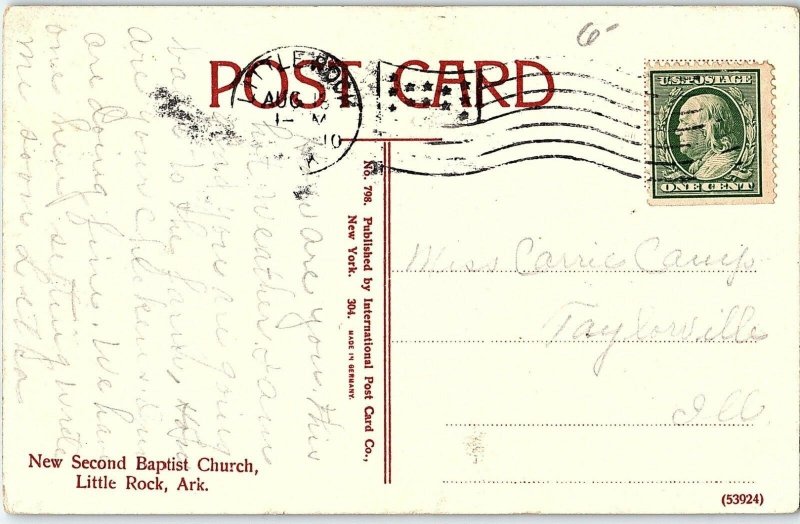 POST CARD
6-
LITTLE ROCK
AUG 1
1- M
10
U.S. POSTAGE
ONE CENT
No. 798. Published by International Post Card Co.,
New York. 304. MADE IN GERMANY.
Miss Carrie Camp
Taylorville
Ill
are you this
hot weather
and you are going
back to the farm, How
are your chickens
are doing fine. We have
one hen setting, write
me soon
New Second Baptist Church,
Little Rock, Ark.
(53924)